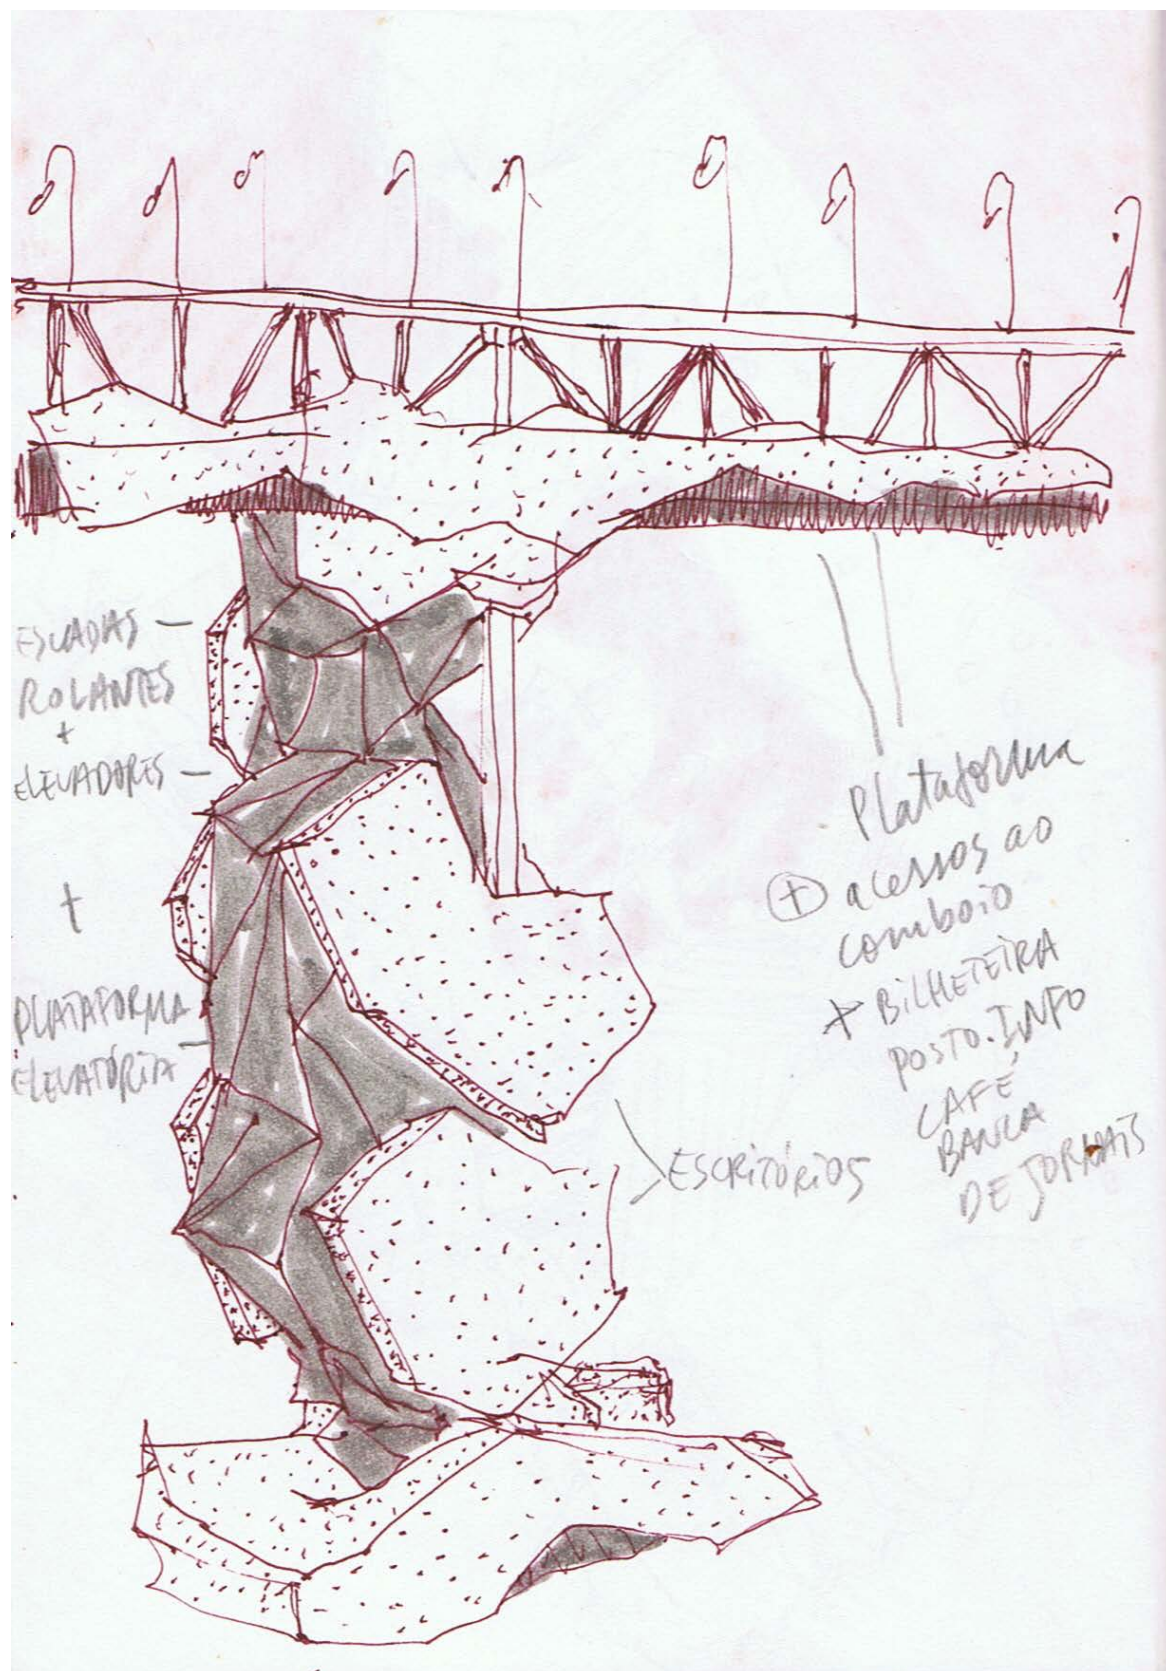 ESCADAS
ROLANTES
+
ELEVADORES
+
PLATAFORMA
ELEVATÓRIA
Plataforma
+ acessos ao
comboio
+ BILHETEIRA
POSTO.INFO
CAFÉ
BANCA
DE JORNAIS
ESCRITÓRIOS